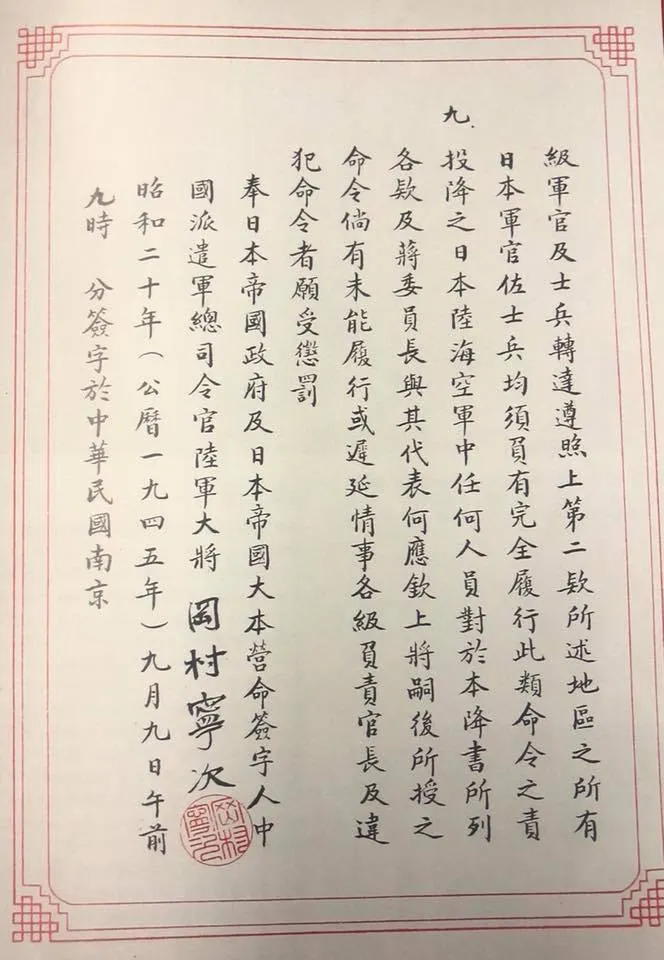 級軍官及士兵轉達遵照上第二欵所述地區之所有
日本軍官佐士兵均須負有完全履行此類命令之責
九.
投降之日本陸海空軍中任何人員對於本降書所列
各欵及蔣委員長與其代表何應欽上將嗣後所授之
命令倘有未能履行或遲延情事各級負責官長及違
犯命令者願受懲罰
奉日本帝國政府及日本帝國大本營命簽字人中
國派遣軍總司令官陸軍大將 岡村寧次
岡村寧次
昭和二十年(公曆一九四五年)九月九日午前
九時 分簽字於中華民國南京